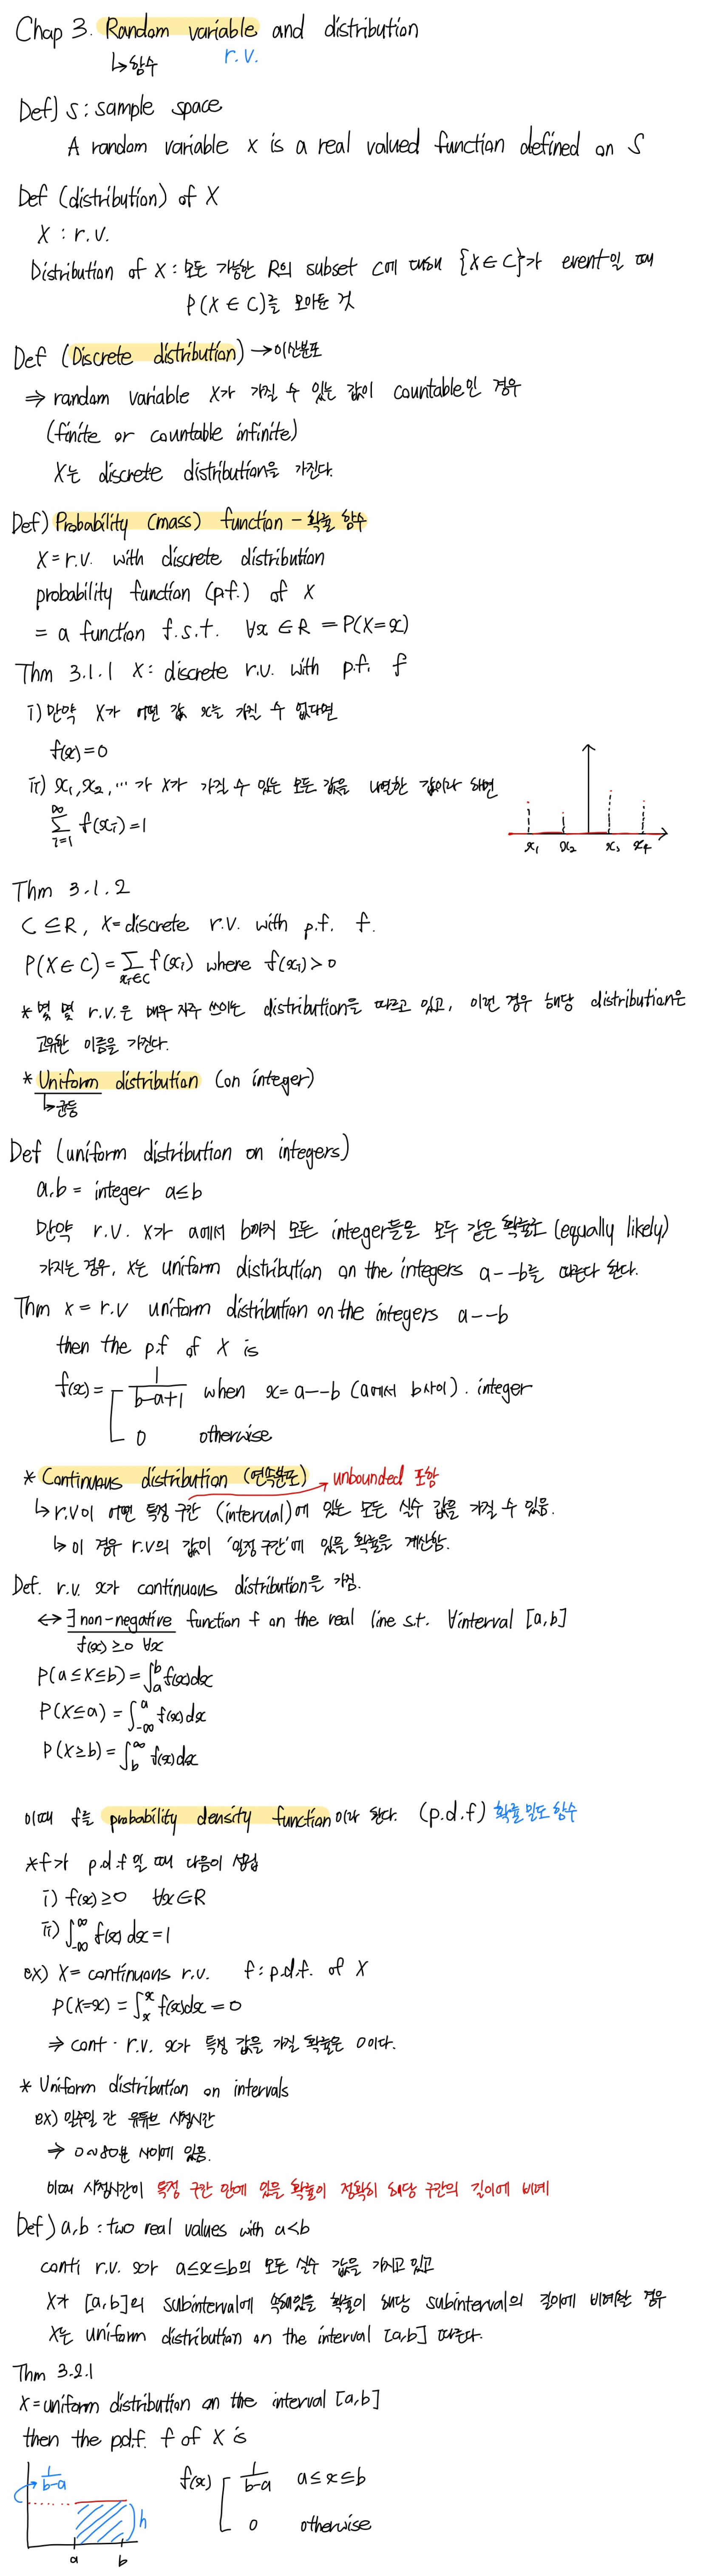 Chap 3. Random variable and distribution
↳함수 r.v.
Def) S: sample space
A random variable X is a real valued function defined on S
Def (distribution) of X
X : r.v.
Distribution of X : 모든 가능한 R의 subset C에 대해 {X∈C}가 event일 때
P(X∈C)를 모아둔 것
Def (Discrete distribution) → 이산분포
⇒ random variable X가 가질 수 있는 값이 countable인 경우
(finite or countable infinite)
X는 discrete distribution을 가진다.
Def) Probability (mass) function - 확률 함수
X = r.v. with discrete distribution
probability function (p.f.) of X
= a function f. s.t. ∀x ∈ R = P(X=x)
Thm 3.1.1 X: discrete r.v. with p.f. f
i) 만약 X가 어떤 값 x를 가질 수 없다면
f(x)=0
ii) x₁, x₂, ... 가 X가 가질 수 있는 모든 값을 나열한 값이라 하면
∑_{i=1}^{∞} f(xᵢ)=1
x₁ x₂ x₃ x₄
Thm 3.1.2
C⊆R, X=discrete r.v. with p.f. f.
P(X∈C) = ∑_{xᵢ∈C} f(xᵢ) where f(xᵢ)>0
* 몇 몇 r.v.은 매우 자주 쓰이는 distribution을 따르고 있고, 이런 경우 해당 distribution은
고유한 이름을 가진다.
* Uniform distribution (on integer)
↳균등
Def (uniform distribution on integers)
a,b = integer a≤b
만약 r.v. X가 a에서 b까지 모든 integer들을 모두 같은 확률로 (equally likely)
가지는 경우, X는 uniform distribution on the integers a--b를 따른다 한다.
Thm X = r.v uniform distribution on the integers a--b
then the p.f of X is
f(x)= 1/(b-a+1) when x=a--b (a에서 b사이). integer
0 otherwise
* Continuous distribution (연속분포) → unbounded 포함
↳ r.v이 어떤 특정 구간 (interval)에 있는 모든 실수 값을 가질 수 있음.
↳ 이 경우 r.v의 값이 '일정 구간'에 있을 확률을 계산함.
Def. r.v. X가 continuous distribution을 가짐.
↔ ∃ non-negative function f on the real line s.t. ∀interval [a,b]
f(x)≥0 ∀x
P(a≤X≤b) = ∫_a^b f(x)dx
P(X≤a) = ∫_{-∞}^a f(x)dx
P(X≥b) = ∫_b^∞ f(x)dx
이때 f를 probability density function이라 한다. (p.d.f) 확률 밀도 함수
*f가 p.d.f일 때 다음이 성립
i) f(x)≥0 ∀x∈R
ii) ∫_{-∞}^∞ f(x)dx=1
ex) X= continuous r.v. f: p.d.f. of X
P(X=x) = ∫_x^x f(x)dx = 0
⇒ cont. r.v. x가 특정 값을 가질 확률은 0이다.
* Uniform distribution on intervals
ex) 일주일 간 유튜브 시청시간
⇒ 0~80분 사이에 있음.
이때 시청시간이 특정 구간 안에 있을 확률이 정확히 해당 구간의 길이에 비례
Def) a,b : two real values with a<b
conti r.v. x가 a≤x≤b의 모든 실수 값을 가지고 있고
X가 [a,b]의 subinterval에 속해있을 확률이 해당 subinterval의 길이에 비례할 경우
X는 uniform distribution on the interval [a,b] 따른다.
Thm 3.2.1
X = uniform distribution on the interval [a,b]
then the p.d.f. f of X is
1/(b-a) h a b
f(x) 1/(b-a) a≤x≤b
0 otherwise